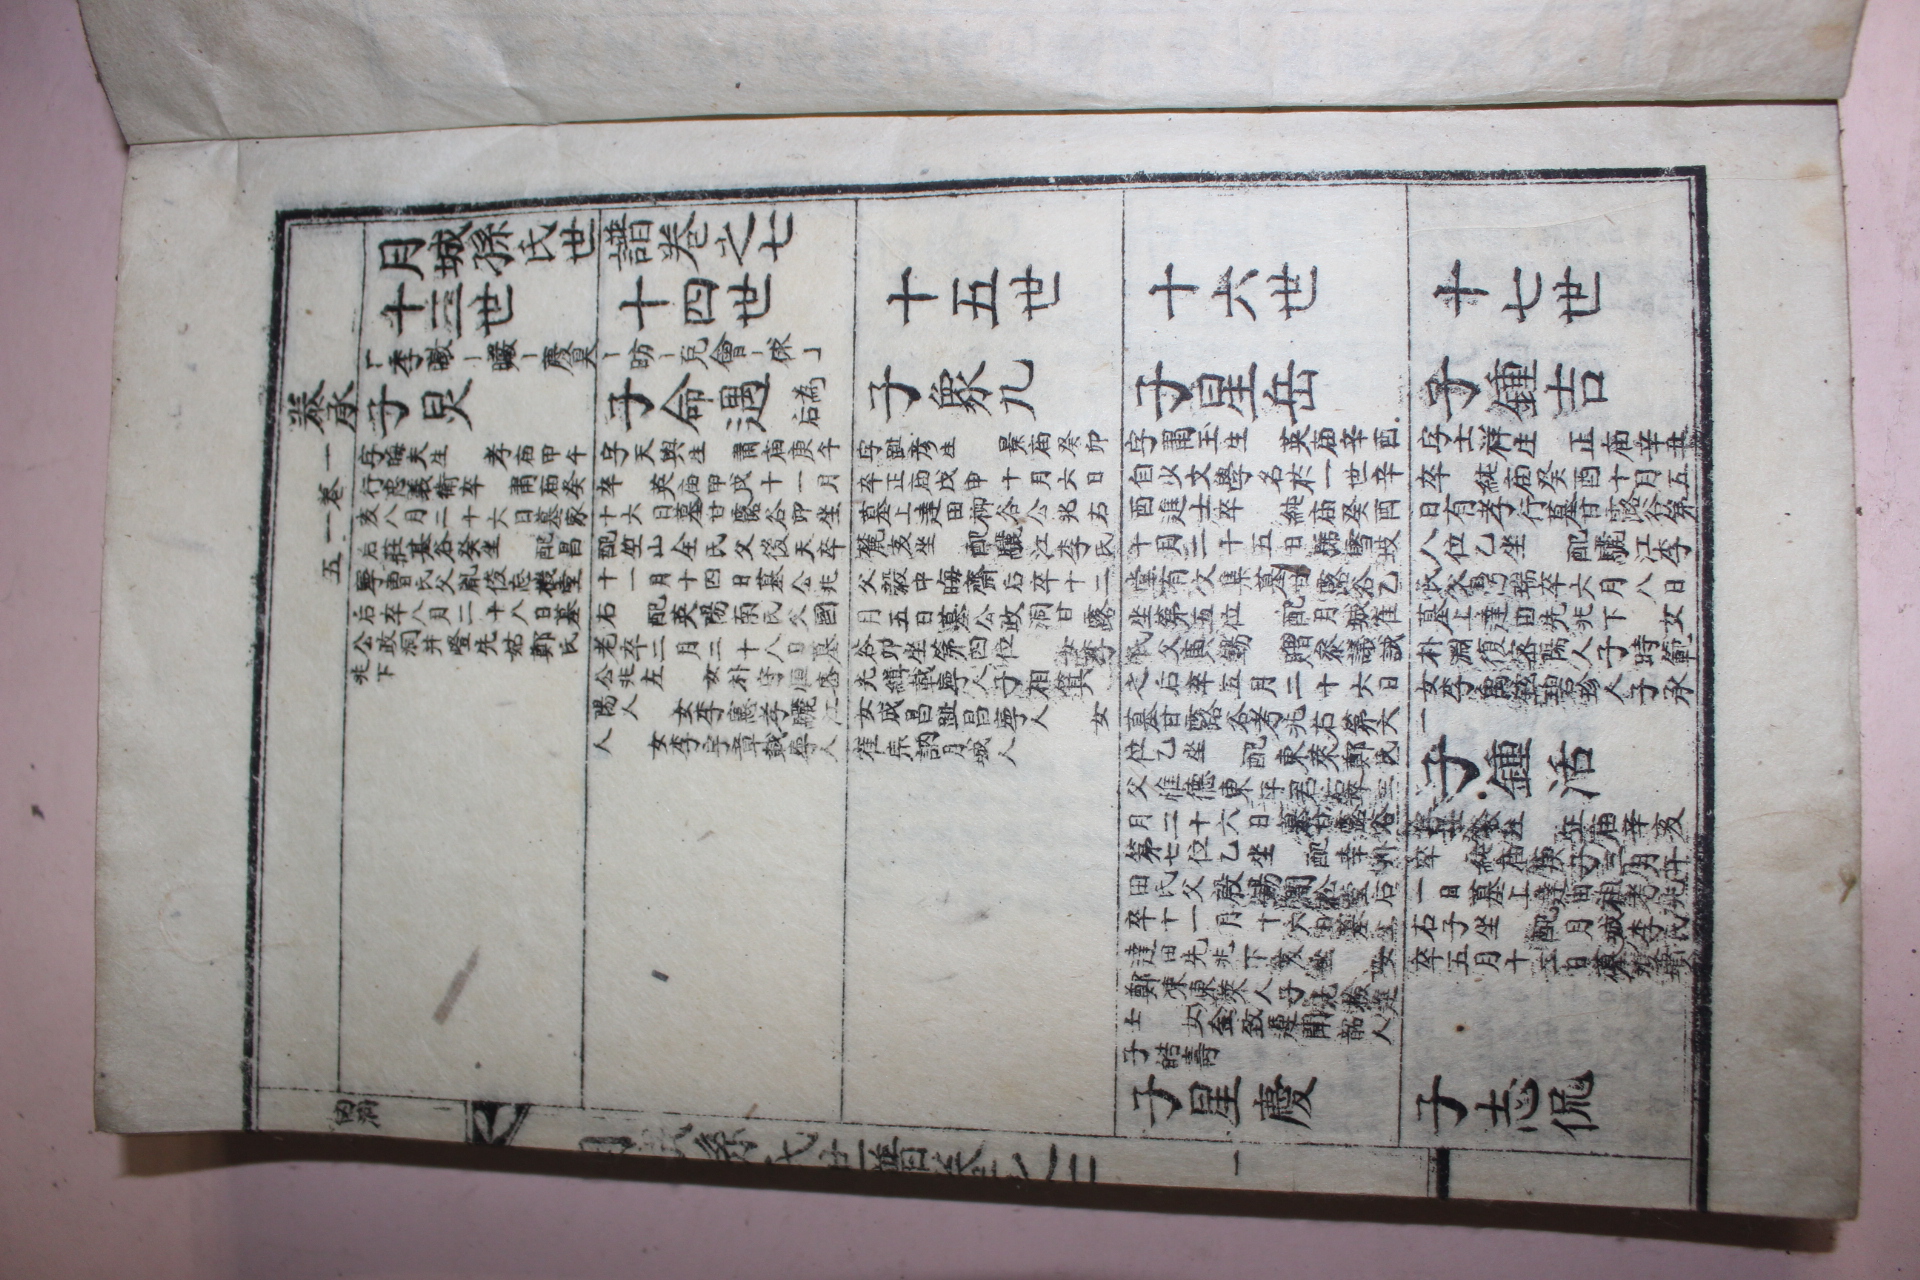 月城孫氏世譜卷之七
十三世
十四世
十五世
十六世
十七世
季暾 曮 慶昊 昉 克會 俅
泰承
一卷一五
子炅
字晦夫生 孝庙甲午
行忠義衛卒 肅庙癸
亥八月二十六日墓家
后莊基谷癸坐 配昌
寧曺氏父胤俊忘機堂
后卒八月二十八日墓
公政洞井嶝先姑鄭氏
兆下
子命遇 為后
字天與生 肅庙庚午
卒 英庙甲戌十一月
十六日墓甘露谷卯坐
配竺山全氏父後天卒
十一月十四日墓公兆
右 配英陽南氏父國
老卒二月二十八日墓
公兆左 女朴守恒密
陽人 女李憲孝驪江
人 女李宇章載寧人
子象九
字趾彦生 景庙癸卯
卒正庙戊申十月六日
墓上達田柳谷公兆右
麓亥坐 配驪江李氏
父毅中晦齋后卒十二
月五日墓公政洞甘露
谷卯坐第四位 女李
光緝載寧人子相箕
女成昌趾昌寧人 女
崔宗訥月城人
子星岳
字肅玉生 英庙辛酉
自少文學名於一世辛
酉進士卒 純庙癸酉
十月二十五日號雪坡
堂有文集墓甘露谷乙
坐第五位 配月城崔
氏父寅錫 贈參議誠
之后卒五月二十六日
墓甘露谷考兆右第六
位乙坐 配東萊鄭氏
父惟德東平君后卒三
月二十六日墓甘露谷
第七位乙坐 配幸州
田氏父殷錫閒松堂后
卒十一月十六日墓上
達田先兆下亥坐 女
鄭涷東萊人子光
士 女金致遵聞韶人
子皓壽
子星慶
子鍾吉
字士祥生 正庙辛丑
卒 純庙癸酉十月五
日有孝行墓甘露谷第
八位乙坐 配驪江李
氏父鼎瑞卒六月八日
墓上達田先兆下 女
朴淵復密陽人子時範
女李禹鉉碧珍人子承
一
子鍾活
正庙辛亥
卒 純庙庚子三月十
一日墓上達田祖考兆
右子坐 配月城李氏
卒五月十三日墓
子志侃
月城孫氏世譜卷之七
一